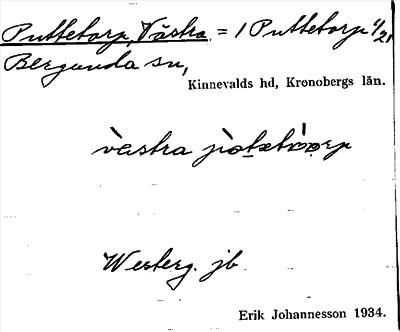 Puttetorp, Västra = 1 Puttetorp 1/21
Bergunda sn,
Kinnevalds hd, Kronobergs län.
vèstra
Westerg. jb
Erik Johannesson 1934.